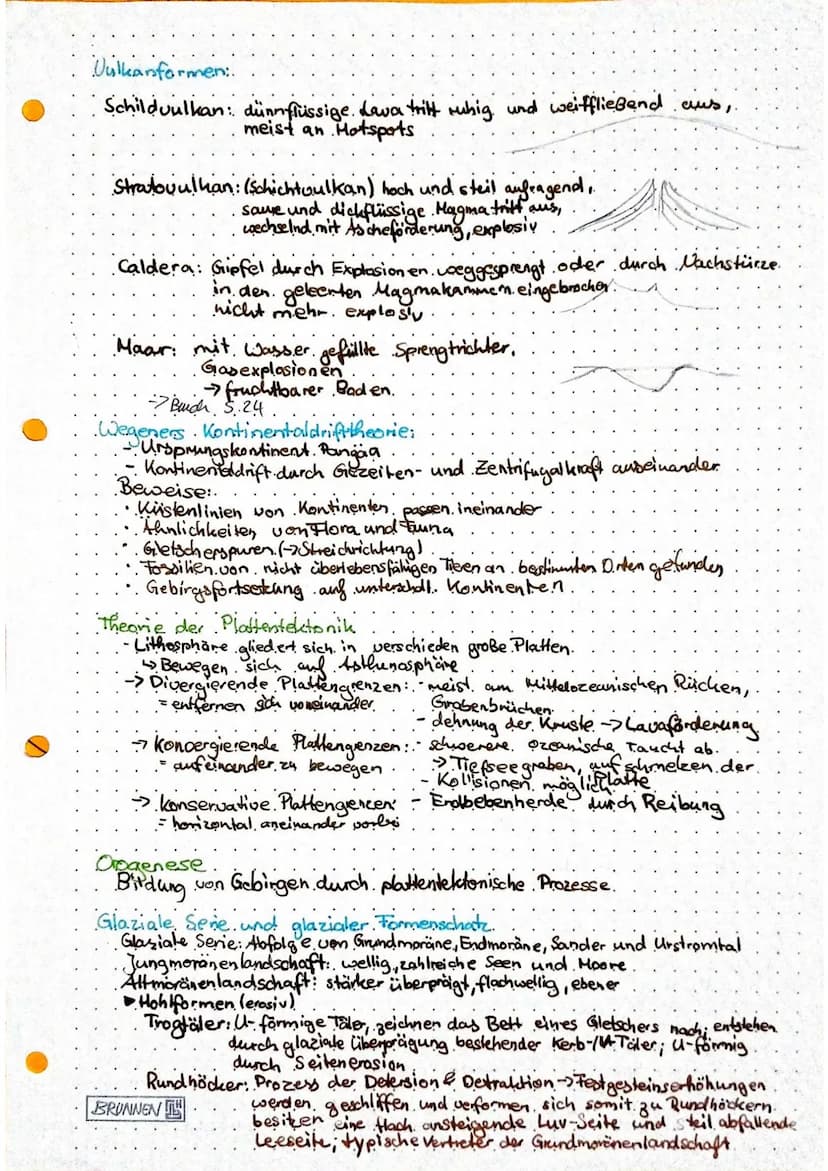 Vulkanformen:
Schildvulkan: dünnflüssige Lava tritt ruhig und weitfließend aus,
meist an Hotspots
Stratovulkan: (Schichtvulkan) hoch und steil aufragend,
saure und dickflüssige Magma tritt aus,
wechselnd mit Ascheförderung, explosiv
Caldera: Gipfel durch Explosionen weggesprengt oder durch Nachstürze
in den geleerten Magmakammern eingebrochen
nicht mehr explosiv
Maar: mit Wasser gefüllte Sprengtrichter,
Gasexplosionen
→ fruchtbarer Boden
→ Buch S. 24
Wegeners Kontinentaldrifttheorie:
- Ursprungskontinent Pangäa
- Kontinentaldrift durch Gezeiten- und Zentrifugalkraft auseinander
Beweise:
• Küstenlinien von Kontinenten passen ineinander
• Ähnlichkeiten von Flora und Fauna
• Gletscherspuren (→ Streichrichtung)
• Fossilien von nicht überlebensfähigen Tieren an bestimmten Orten gefunden
• Gebirgsfortsetzung auf unterschdl. Kontinenten
Theorie der Plattentektonik
- Lithosphäre gliedert sich in verschieden große Platten
↳ Bewegen sich auf Asthenosphäre
→ Divergierende Plattengrenzen: - meist am Mittelozeanischen Rücken,
= entfernen sich voneinander Grabenbrüchen
- dehnung der Kruste → Lavaförderung
→ Konvergierende Plattengrenzen: - schwerere ozeanische taucht ab
= aufeinander zu bewegen → Tiefseegraben, aufschmelzen der Platte
- Kollisionen möglich
→ Konservative Plattengrenzen: - Erdbebenherde durch Reibung
= horizontal aneinander vorbei
Orogenese
Bildung von Gebirgen durch plattentektonische Prozesse
Glaziale Serie und glazialer Formenschatz
Glaziale Serie: Abfolge von Grundmoräne, Endmoräne, Sander und Urstromtal
Jungmoränenlandschaft: wellig, zahlreiche Seen und Moore
Altmoränenlandschaft: stärker überprägt, flachwellig, ebener
▶ Hohlformen (erosiv)
Trogtäler: U-förmige Täler, zeichnen das Bett eines Gletschers nach; entstehen
durch glaziale Überprägung bestehender Kerb-/V-Täler; U-förmig
durch Seitenerosion
Rundhöcker: Prozess der Detersion & Detraktion → Festgesteinserhöhungen
werden geschliffen und verformen sich somit zu Rundhöckern
besitzen eine flach ansteigende Luv-Seite und steil abfallende
Leeseite; typische Vertreter der Grundmoränenlandschaft
BRUNNEN